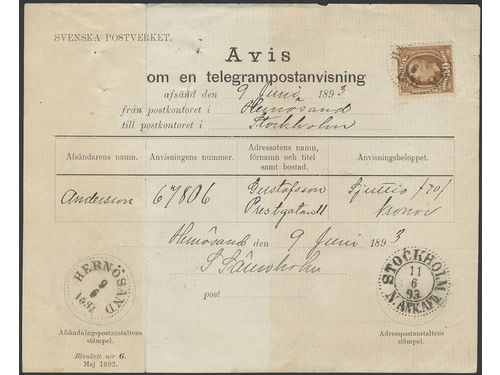 SVENSKA POSTVERKET.
Avis
om en telegrampostanvisning
afsänd den 9 Juni 1893
från postkontoret i Hernösand
till postkontoret i Stockholm
Afsändarens namn. Anvisningens nummer. Adressatens namn, förnamn och titel samt bostad. Anvisningsbeloppet.
Andersson 67806 Gustafsson Sjuttio /70/
Prestgatan 11 kronor
Hernösand den 9 Juni 1893
post
HERNÖSAND
9
6
1893
STOCKHOLM
11
6
93
N. ANK. AFD.
Afsändningspostanstaltens stämpel.
Adresspostanstaltens stämpel.
Blankett n:r 6.
Maj 1892.